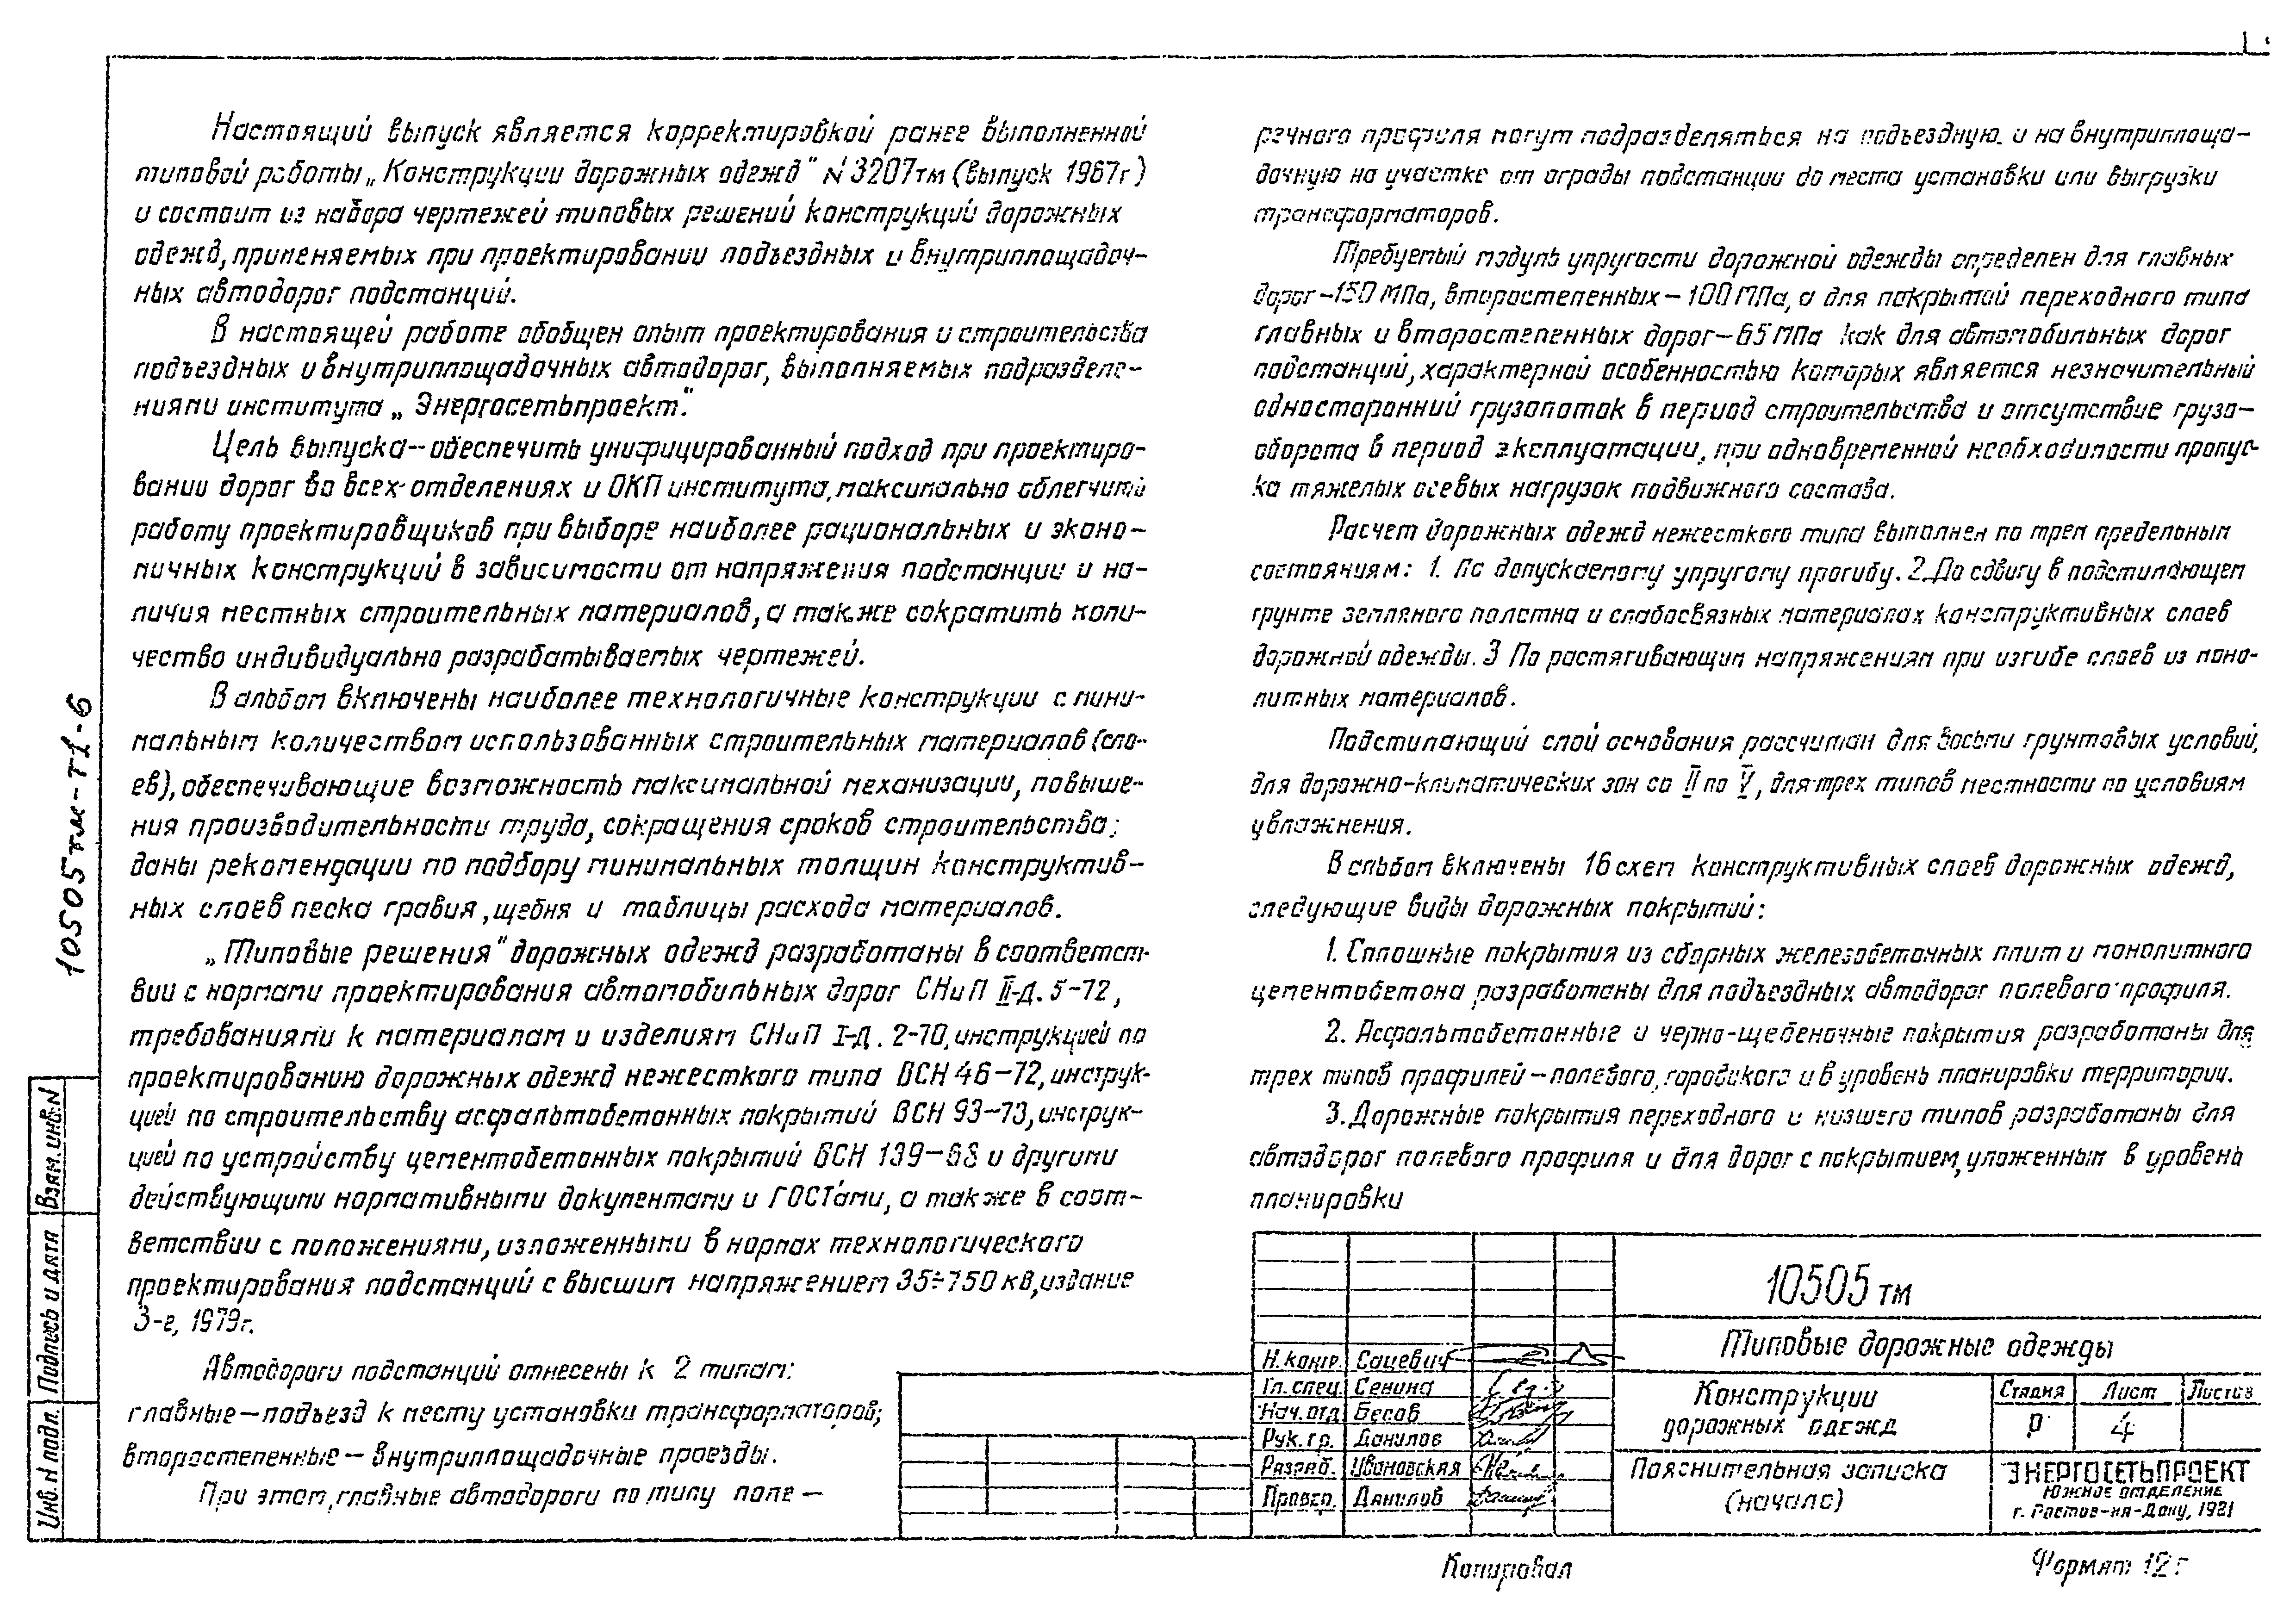 Настоящий выпуск является корректировкой ранее выполненной
типовой работы „Конструкции дорожных одежд" N 3207тм (выпуск 1967г)
и состоит из набора чертежей типовых решений конструкций дорожных
одежд, применяемых при проектировании подъездных и внутриплощадоч-
ных автодорог подстанций.
В настоящей работе обобщен опыт проектирования и строительства
подъездных и внутриплощадочных автодорог, выполняемых подразделе-
ниями института „Энергосетьпроект".
Цель выпуска-обеспечить унифицированный подход при проектиро-
вании дорог во всех отделениях и ОКП института, максимально облегчить
работу проектировщиков при выборе наиболее рациональных и эконо-
мичных конструкций в зависимости от напряжения подстанции и на-
личия местных строительных материалов, а также сократить коли-
чество индивидуально разрабатываемых чертежей.
В альбом включены наиболее технологичные конструкции с мини-
мальным количеством использованных строительных материалов (сло-
ев), обеспечивающие возможность максимальной механизации, повыше-
ния производительности труда, сокращения сроков строительства;
даны рекомендации по подбору минимальных толщин конструктив-
ных слоев песка гравия, щебня и таблицы расхода материалов.
„Типовые решения" дорожных одежд разработаны в соответст-
вии с нормами проектирования автомобильных дорог СНиП II-Д. 5-72,
требованиями к материалам и изделиям СНиП I-Д. 2-70, инструкцией по
проектированию дорожных одежд нежесткого типа ВСН 46-72, инструк-
цией по строительству асфальтобетонных покрытий ВСН 93-73, инструк-
цией по устройству цементобетонных покрытий ВСН 139-68 и другими
действующими нормативными документами и ГОСТами, а также в соот-
ветствии с положениями, изложенными в нормах технологического
проектирования подстанций с высшим напряжением 35÷750 кв, издание
3-е, 1979г.
Автодороги подстанций отнесены к 2 типам:
главные-подъезд к месту установки трансформаторов;
второстепенные - внутриплощадочные проезды.
При этом, главные автодороги по типу попе-
речного профиля могут подразделяться на подъездную и на внутриплоща-
дочную на участке от ограды подстанции до места установки или выгрузки
трансформаторов.
Требуемый модуль упругости дорожной одежды определен для главных
дорог-150 МПа, второстепенных- 100МПа, а для покрытий переходного типа
главных и второстепенных дорог-65МПа как для автомобильных дорог
подстанций, характерной особенностью которых является незначительный
односторонний грузопоток в период строительства и отсутствие грузо-
оборота в период эксплуатации, при одновременной необходимости пропус-
ка тяжелых осевых нагрузок подвижного состава.
Расчет дорожных одежд нежесткого типа выполнен по трем предельным
состояниям: 1. По допускаемому упругому прогибу. 2.По сдвигу в подстилающем
грунте земляного полотна и слабосвязных материалах конструктивных слоев
дорожной одежды. 3 По растягивающим напряжениям при изгибе слоев из моно-
литных материалов.
Подстилающий слой основания рассчитан для восьми грунтовых условий,
для дорожно-климатических зон со II по V, для трех типов местности по условиям
увлажнения.
В альбом включены 16 схем конструктивных слоев дорожных одежд,
следующие виды дорожных покрытий:
1. Сплошные покрытия из сборных железобетонных плит и монолитного
цементобетона разработаны для подъездных автодорог полевого профиля.
2. Асфальтобетонные и черно-щебеночные покрытия разработаны для
трех типов профилей-полевого, городского и в уровень планировки территории.
3. Дорожные покрытия переходного и низшего типов разработаны для
автодорог полевого профиля и для дорог с покрытием, уложенным в уровень
планировки
10505тм-т1-6
Взам. инв. N
Подпись и дата
Инв. N подл.
10505 тм
Типовые дорожные одежды
Н. контр. Сацевич
Гл. спец. Сенина
Нач. отд Бесов
Рук. гр. Данилов
Разраб. Ивановская
Провер. Данилов
Конструкции
дорожных одежд
Стадия Лист Листов
Р 4
Пояснительная записка
(начало)
ЭНЕРГОСЕТЬПРОЕКТ
Южное отделение
г. Ростов-на-Дону, 1981
Копировал
Формат 12г